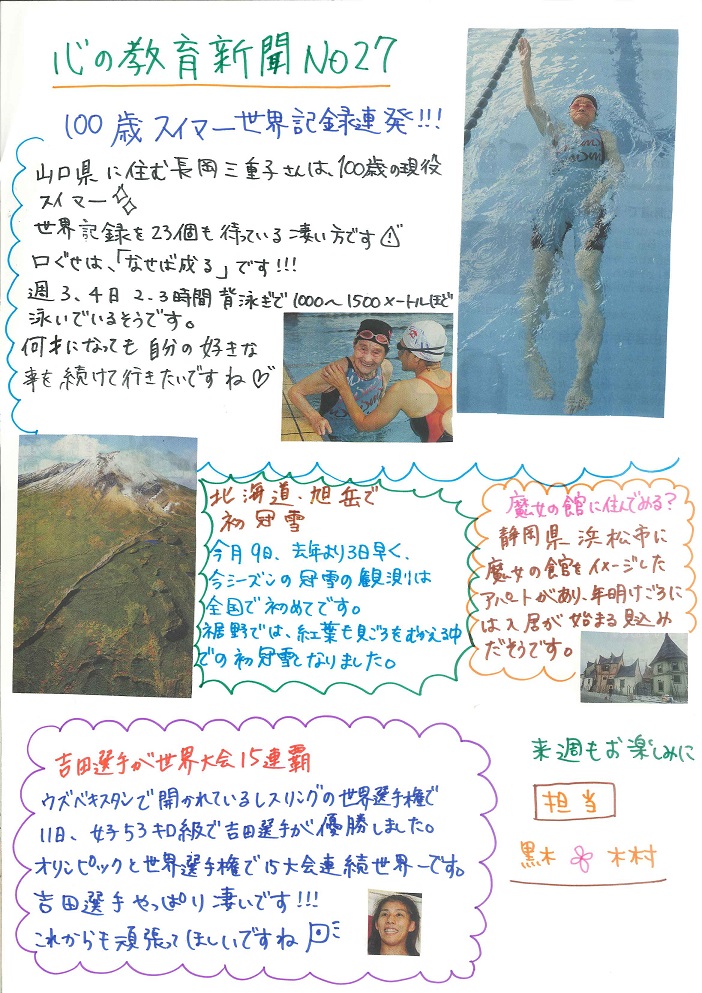 心の教育新聞 No27
100歳スイマー世界記録連発!!!
山口県に住む長岡三重子さんは、100歳の現役
スイマー
世界記録を23個も待っている凄い方です
口ぐせは、「なせば成る」です!!!
週3、4日 2〜3時間 背泳ぎで1000〜1500メートルほど
泳いでいるそうです。
何才になっても自分の好きな
事を続けて行きたいですね♡
北海道・旭岳で
初冠雪
今月9日、去年より3日早く、
今シーズンの冠雪の観測は
全国で初めてです。
裾野では、紅葉も見ごろをむかえる中
での初冠雪となりました。
魔女の館に住んでみる?
静岡県浜松市に
魔女の館をイメージした
アパートがあり、年明けごろに
は入居が始まる見込み
だそうです。
吉田選手が世界大会15連覇
ウズベキスタンで開かれているレスリングの世界選手権で
11日、女子53キロ級で吉田選手が優勝しました。
オリンピックと世界選手権で15大会連続世界一です。
吉田選手やっぱり凄いです!!!
これからも頑張ってほしいですね
来週もお楽しみに
担当
黒木 木村